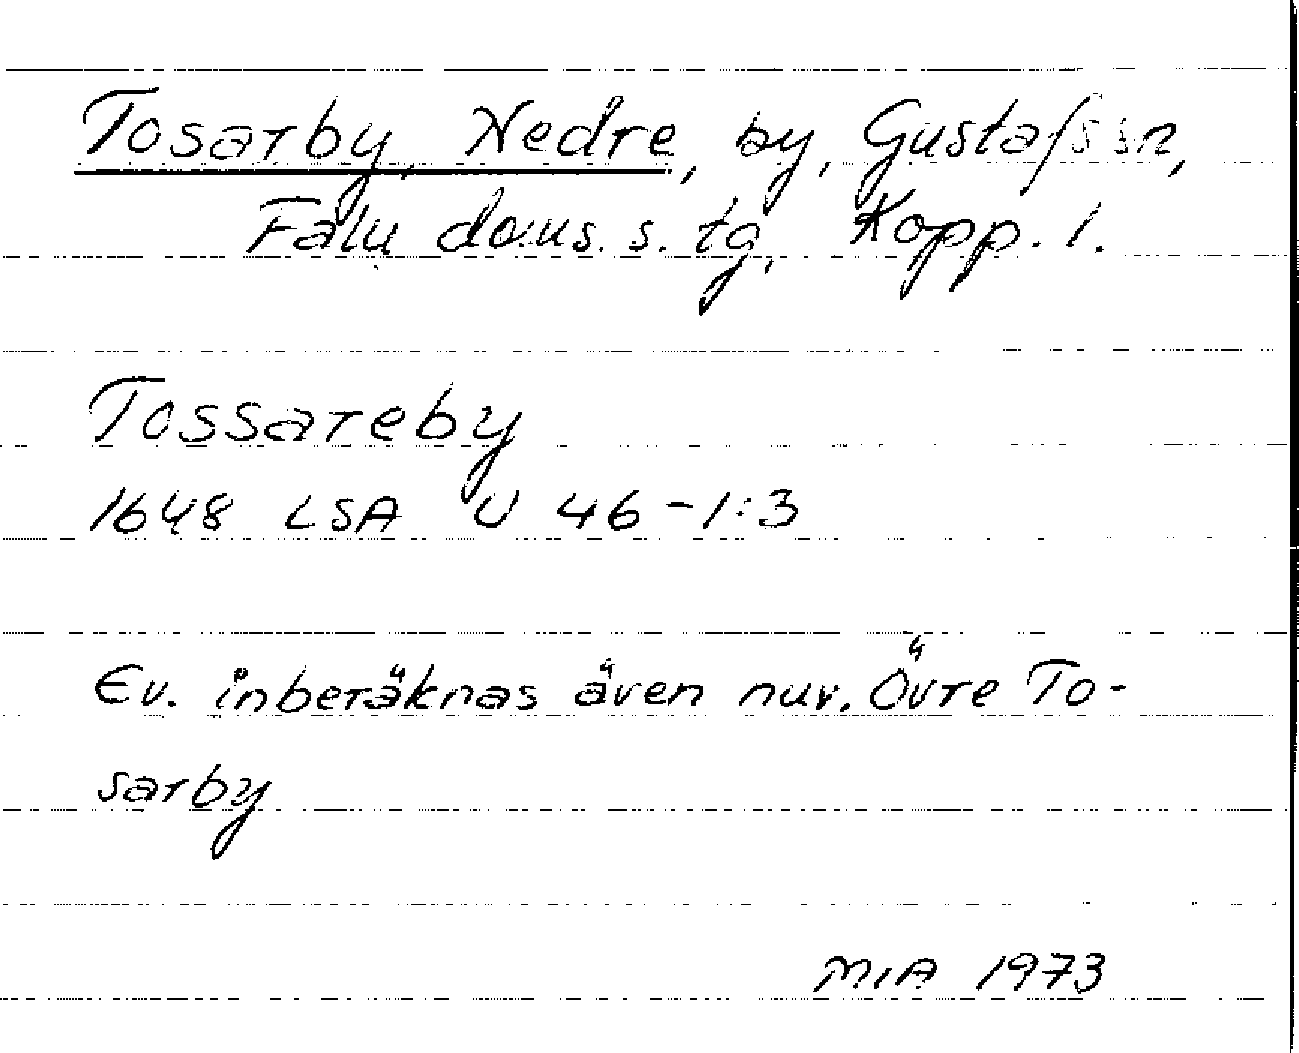 Tosarby, Nedre, by, Gustafs sn,
Falu doms. s. tg, Kopp. l.
Tossareby
1648 LSA U 46-1:3
Ev. inberäknas även nuv. Övre To-
sarby
MIA 1973